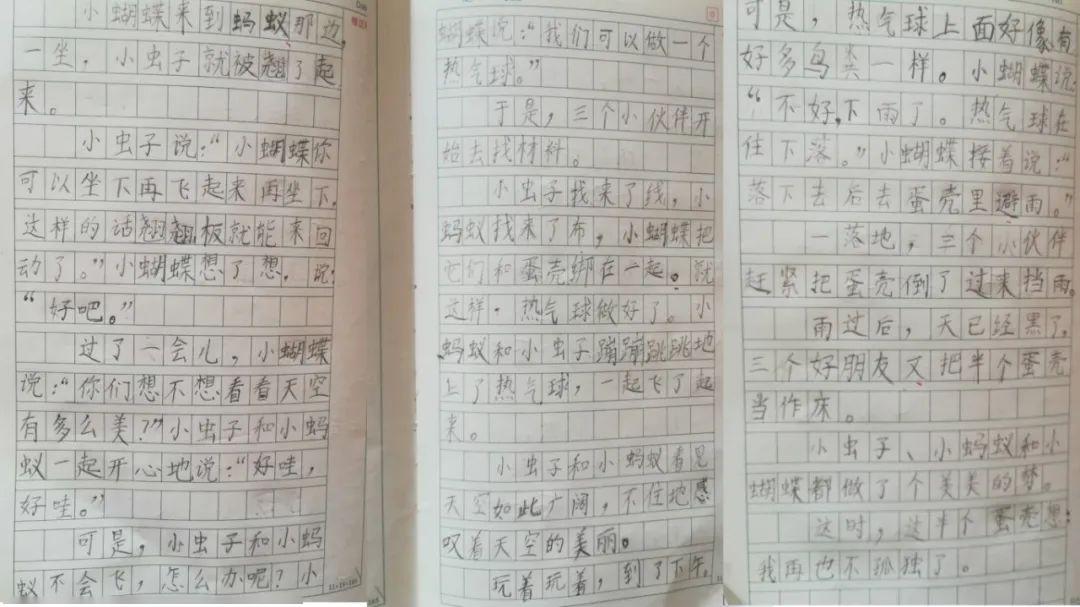 小蝴蝶来到蚂蚁那边,
一坐,小虫子就被翘了起
来。
小虫子说:“小蝴蝶你
可以坐下再飞起来再坐下,
这样的话翘翘板就能来回
动了。”小蝴蝶想了想,说:
“好吧。”
过了一会儿,小蝴蝶
说:“你们想不想看看天空
有多么美?”小虫子和小蚂
蚁一起开心地说:“好哇,
好哇。”
可是,小虫子和小蚂
蚁不会飞,怎么办呢?小
蝴蝶说:“我们可以做一个
热气球。”
于是,三个小伙伴开
始去找材料。
小虫子找来了线,小
蚂蚁找来了布,小蝴蝶把
它们和蛋壳绑在一起。就
这样,热气球做好了。小
蚂蚁和小虫子蹦蹦跳跳地
上了热气球,一起飞了起
来。
小虫子和小蚂蚁看见
天空如此广阔,不住地感
叹着天空的美丽。
玩着玩着,到了下午。
可是,热气球上面好像有
好多鸟类一样。小蝴蝶说:
“不好,下雨了。热气球在
住下落。”小蝴蝶接着说:“
落下去后去蛋壳里避雨。”
一落地,三个小伙伴
赶紧把蛋壳倒了过来挡雨。
雨过后,天已经黑了,
三个好朋友又把半个蛋壳
当作床。
小虫子、小蚂蚁和小
蝴蝶都做了个美美的梦。
这时,这半个蛋壳想:
我再也不孤独了。